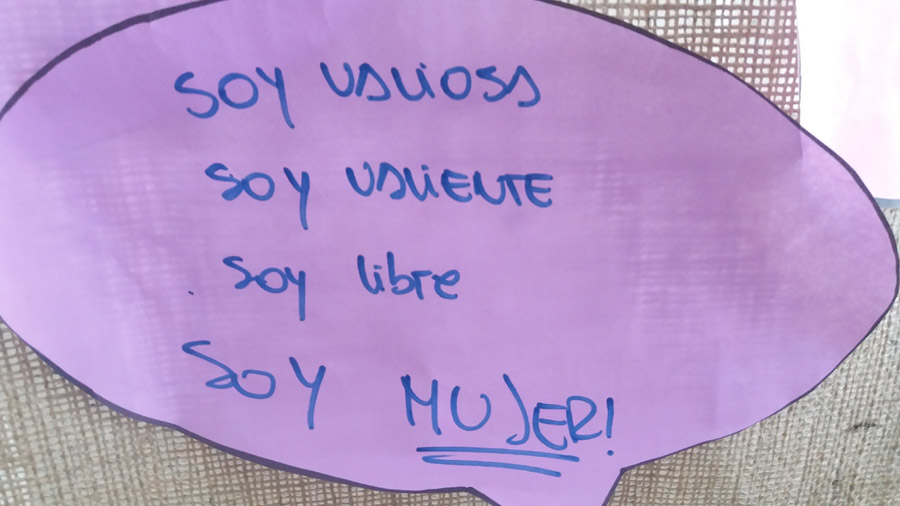 SOY VALIOSA
SOY VALIENTE
Soy libre
SOY MUJER!